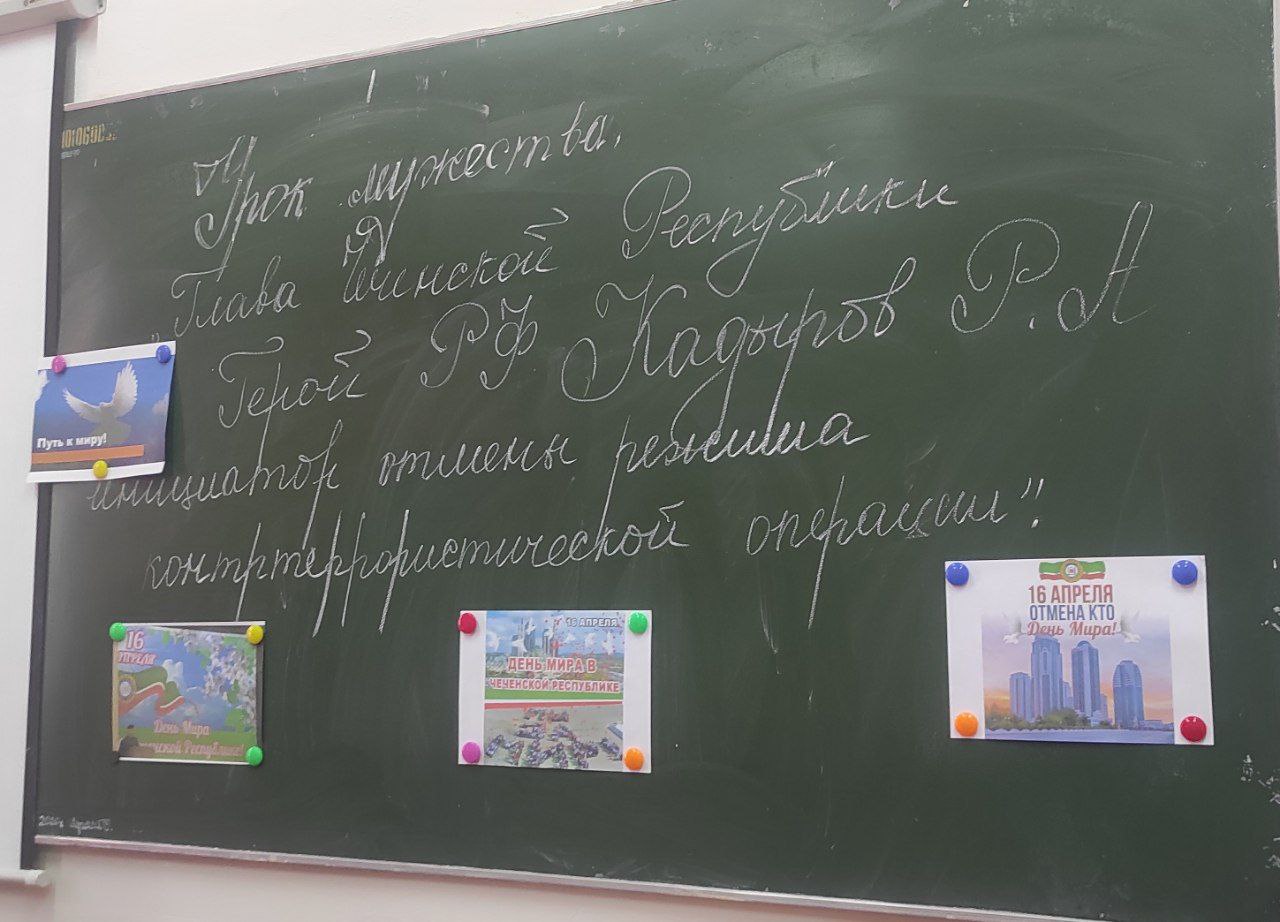 Урок мужества.
„Глава Чеченской Республики
Герой РФ Кадыров Р.А
инициатор отмены режима
контртеррористической операции".
Путь к миру!
16
АПРЕЛЯ
День Мира
Чеченской Республике!
16 АПРЕЛЯ
ДЕНЬ МИРА В
ЧЕЧЕНСКОЙ РЕСПУБЛИКЕ
16 АПРЕЛЯ
ОТМЕНА КТО
День Мира!